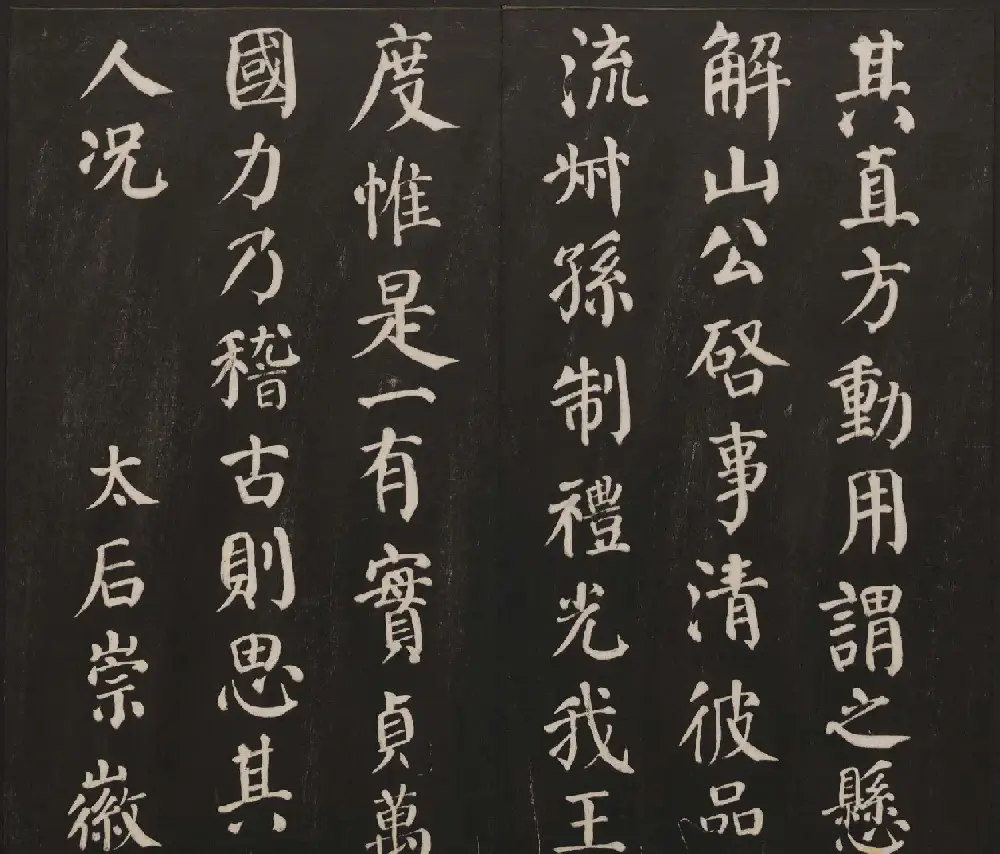 其直方動用謂之懸
解山公啓事清彼品
流艸孫制禮光我王
度惟是一有實貞萬
國力乃稽古則思其
人况 太后崇徽